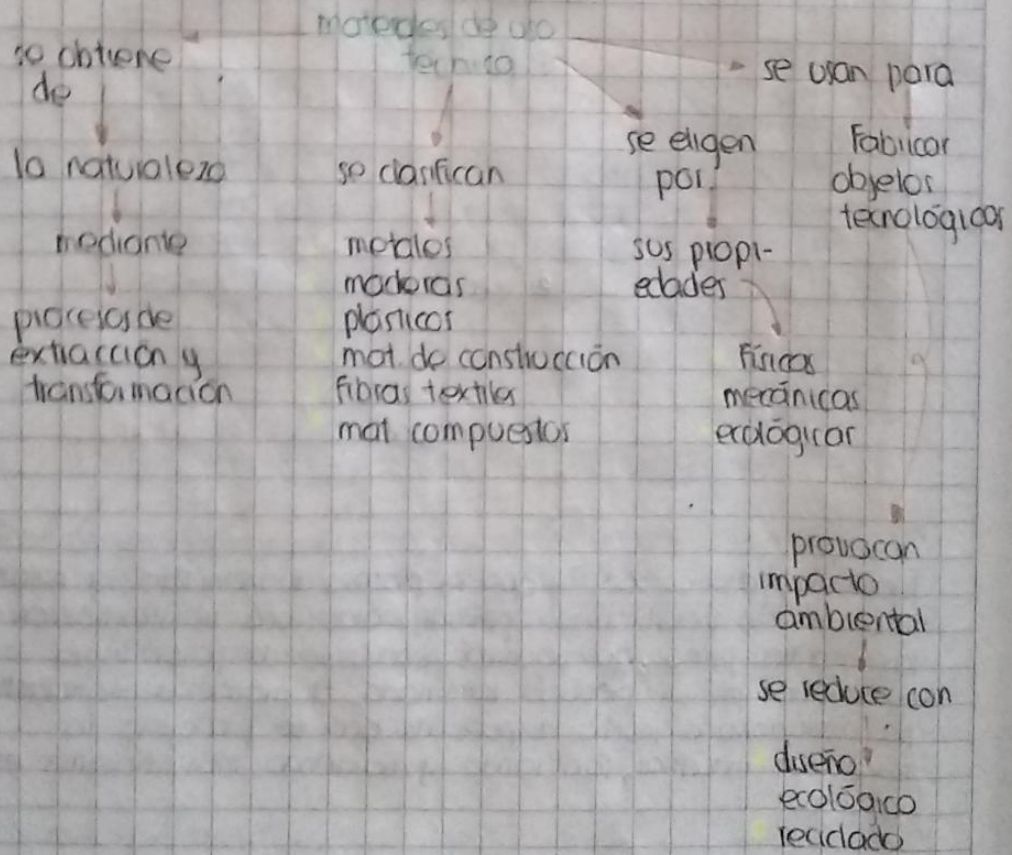 materiales de uso
técnico
se obtiene
de
la naturaleza
mediante
procesos de
extracción y
transformación
se clasifican
metales
maderas
plásticos
mat. de construcción
fibras textiles
mat compuestos
se eligen
por
sus propi-
edades
Físicas
mecánicas
ecológicas
se usan para
Fabricar
objetos
tecnológicos
provocan
impacto
ambiental
se reduce con
diseño
ecológico
reciclado